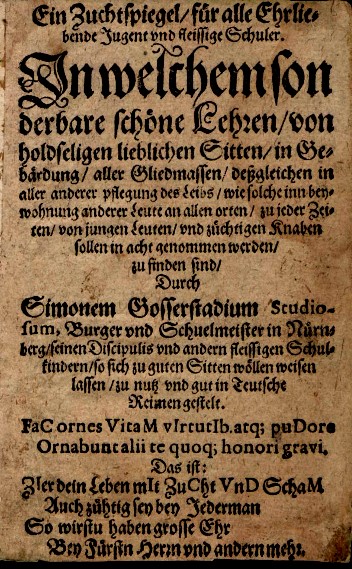 Ein Zuchtspiegel/ für alle Ehrlie-
bende Jugent vnd fleissige Schuler.
In welchem son
derbare schöne Lehren/ von
holdseligen lieblichen Sitten/ in Ge-
bärdung/ aller Gliedmassen/ deßgleichen in
aller anderer pflegung des Leibs/ wie solche inn bey-
wohnung anderer Leute an allen orten/ zu jeder Zei-
ten/ von jungen Leuten/ vnd züchtigen Knaben
sollen in acht genommen werden/
zu finden sind/
Durch
Simonem Gosserstadium Studio-
sum, Burger vnd Schuelmeister in Nürn-
berg/ seinen Discipulis vnd andern fleissigen Schul-
kindern/ so sich zu guten Sitten wöllen weisen
lassen/ zu nutz vnd gut in Teutsche
Reimen gestelt.
FaC ornes VitaM vIrtutIb. atq; puDore
Ornabunt alii te quoq; honori gravi.
Das ist:
ZIer dein Leben mIt ZuCht VnD SchaM
Auch zühtig sey bey Jederman
So wirstu haben grosse Ehr
Bey Fürstn Herrn vnd andern mehr.